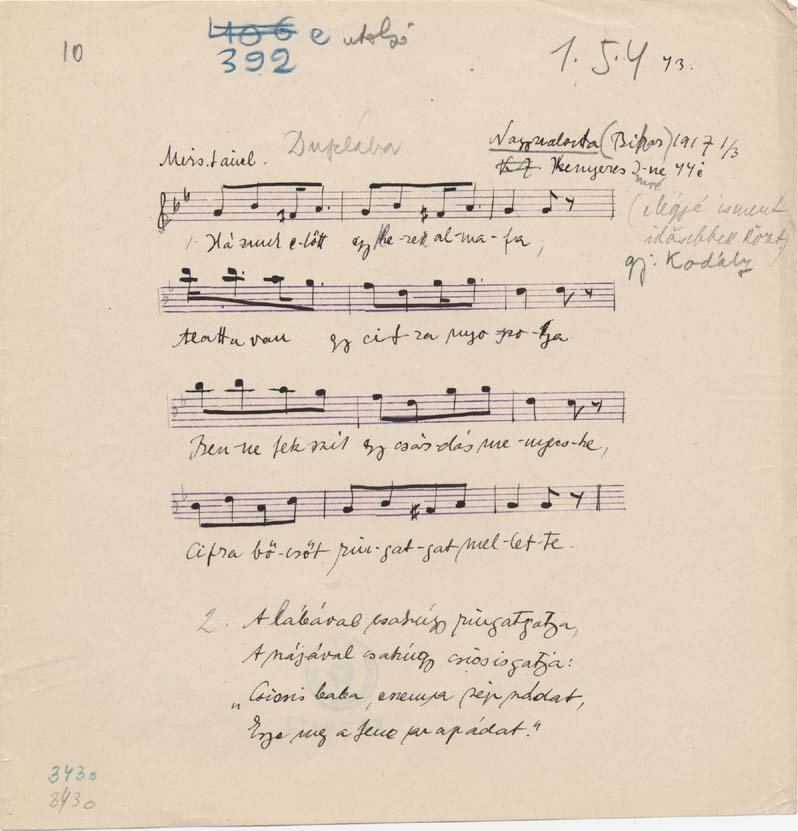 10
406 e utolsó
392
1. 5. 4 43.
Duplába
Nagyszalonta (Bihar) 1917 1/3
Kenyeres J-né 44 é
(Négyé ismert
idősebbek közt)
gj: Kodály
1. Házunk e-lőtt egy ke-rek al-ma-fa,
alatta van egy cif-ra nyo-szo-lya.
Ben-ne fekszik egy csárdás me-nyecs-ke,
Cifra bő-csőt rin-gat-gat mel-let-te.
2. A lábával csakúgy ringatgatja,
A szájával csakúgy csicsisgatja:
„Csicsis baba, csempe szádat,
Egye meg a fene az apádat."
3430
3430